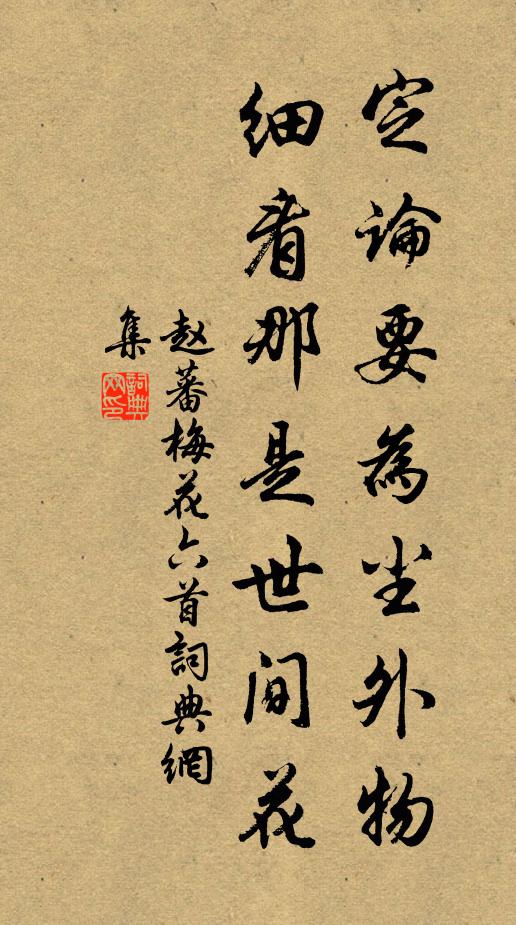 定論要為尘外物
细看那是世间花
赵蕃梅花六首詞典網
集
詞典
网印